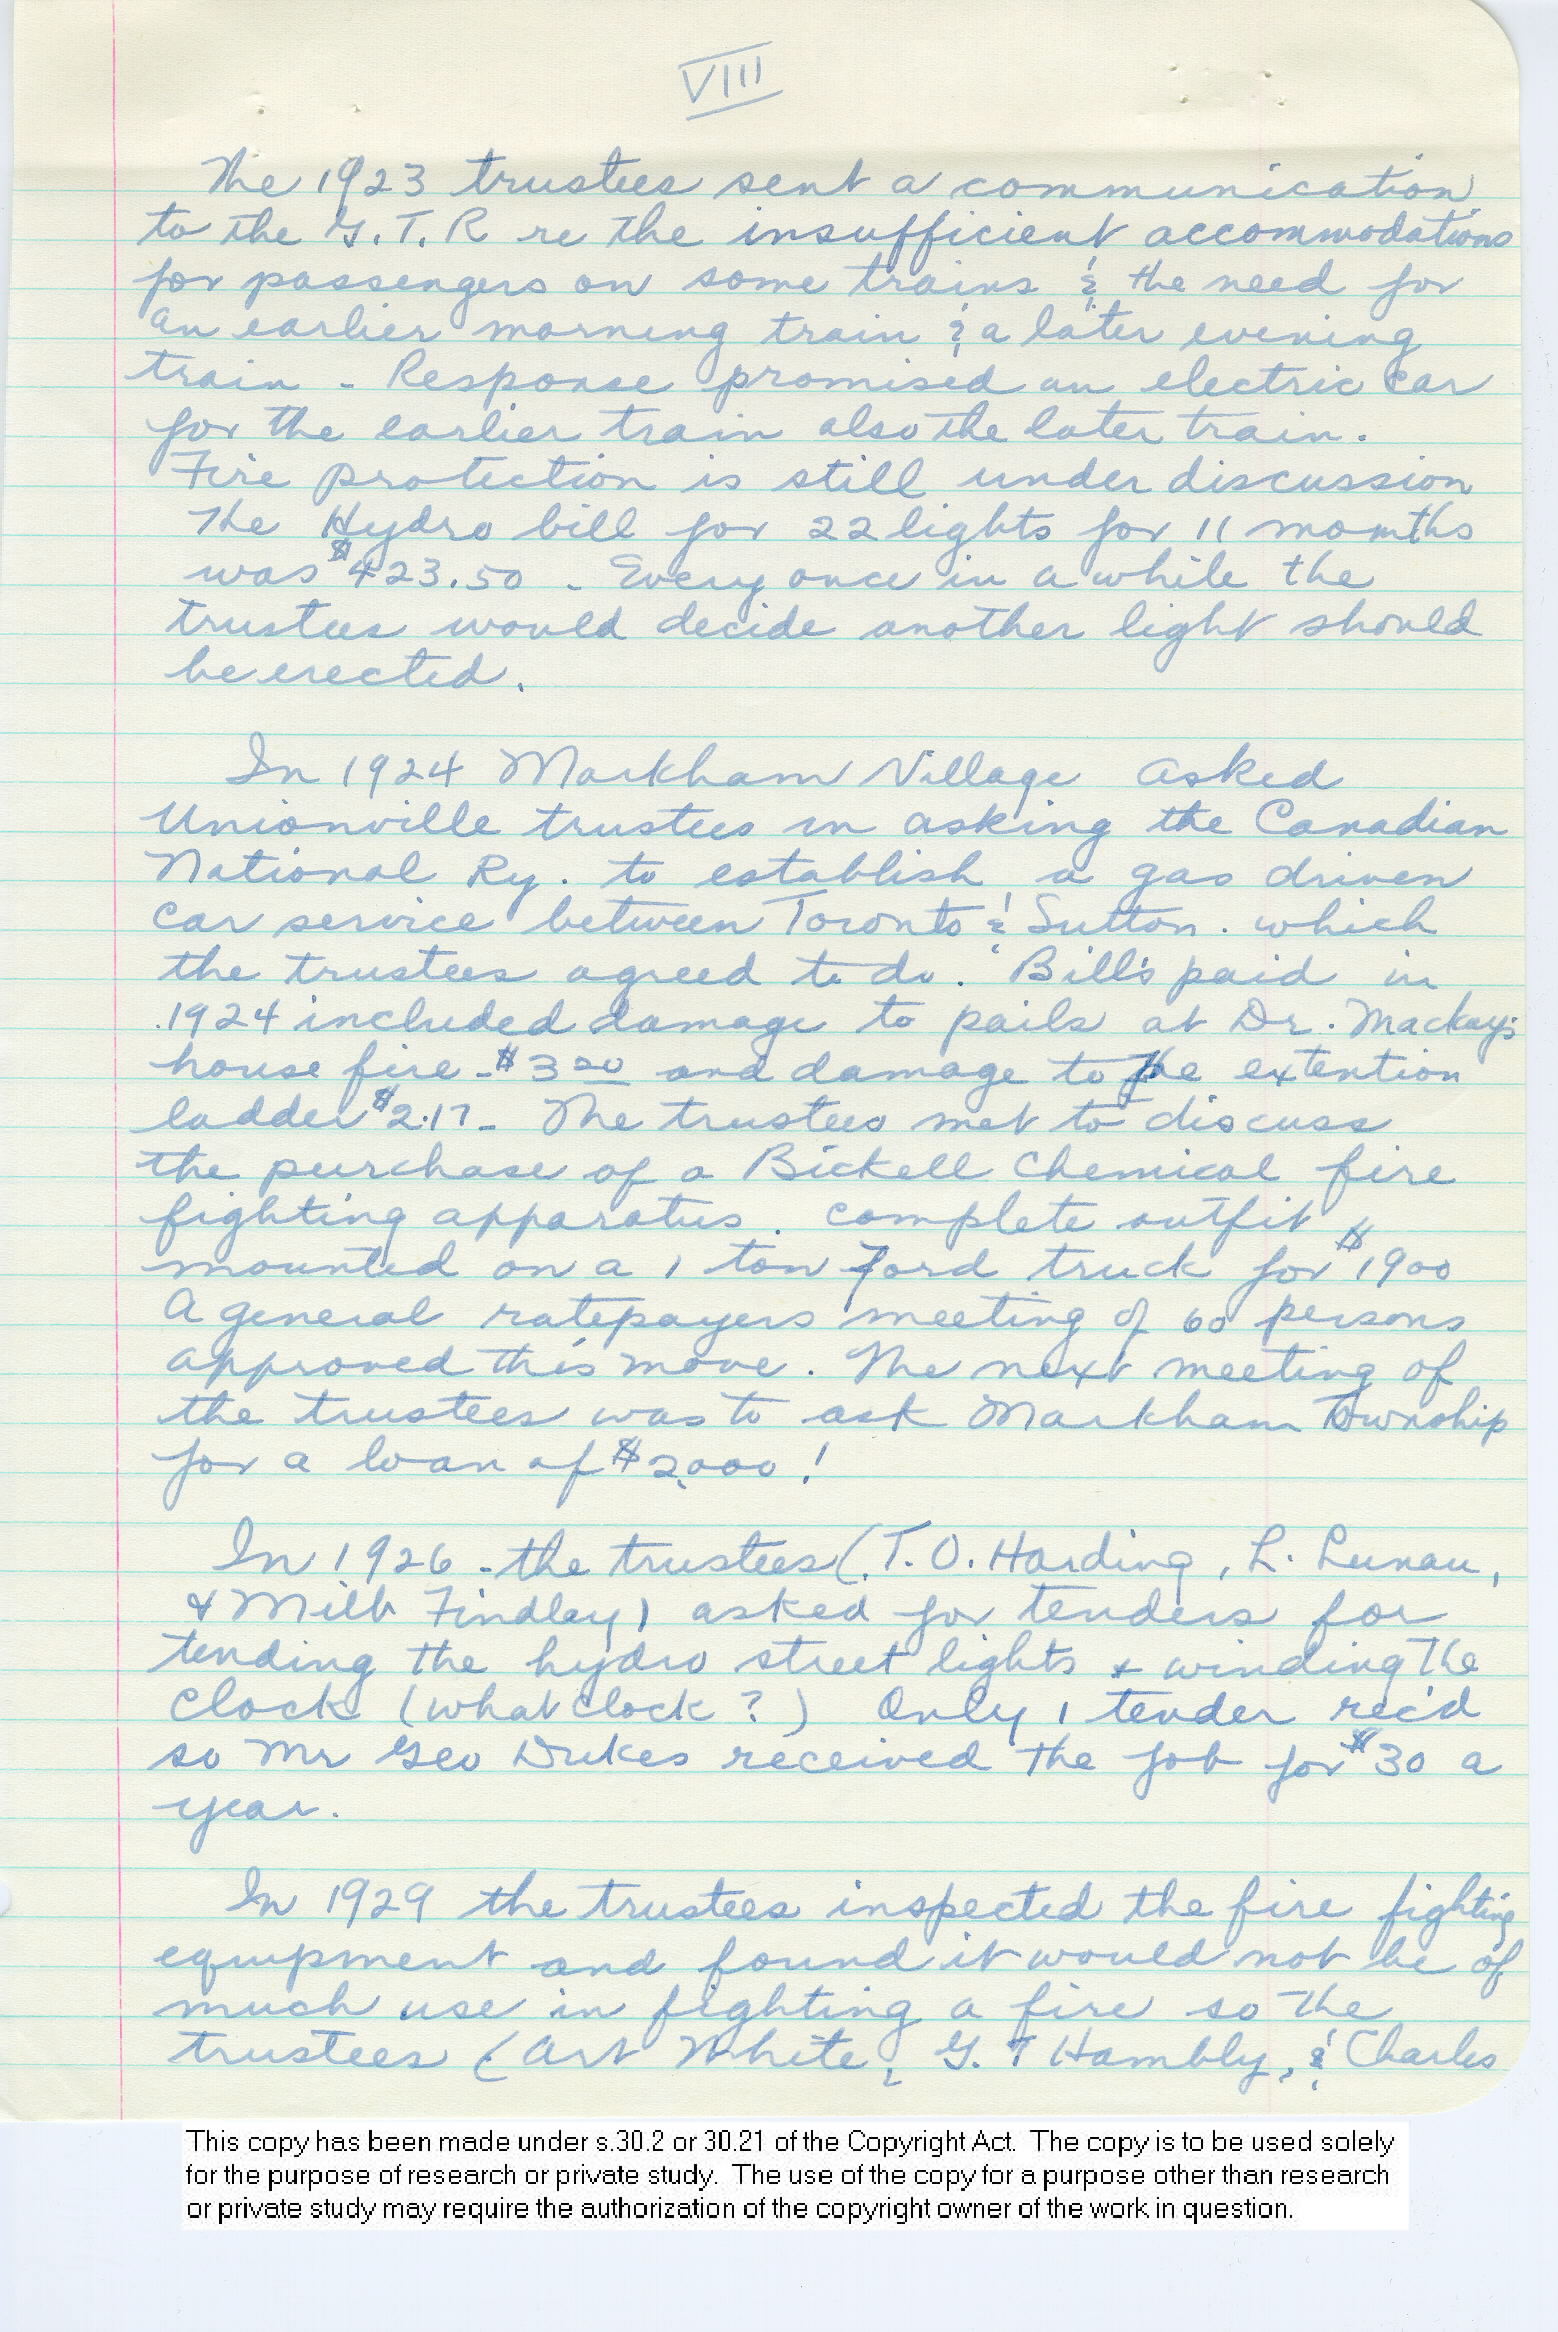 VIII
The 1923 trustees sent a communication
to the G.T.R re the insufficient accommodations
for passengers on some trains & the need for
an earlier morning train & a later evening
train - Response promised an electric car
for the earlier train also the later train.
Fire protection is still under discussion
The Hydro bill for 22 lights for 11 months
was $423.50 - Every once in a while the
trustees would decide another light should
be erected.
In 1924 Markham Village asked
Unionville trustees in asking the Canadian
National Ry. to establish a gas driven
car service between Toronto & Sutton. which
the trustees agreed to do. Bill's paid in
1924 included damage to pails at Dr. Mackay's
house fire - $3 20 and damage to the extention
ladder $2.17 - The trustees met to discuss
the purchase of a Bickell Chemical fire
fighting apparatus. complete outfit
mounted on a 1 ton Ford truck for $1900
A general ratepayers meeting of 60 persons
approved this move. The next meeting of
the trustees was to ask Markham Township
for a loan of $2,000!
In 1926 - the trustees (T.O. Harding, L. Lunau,
& Milt Findlay) asked for tenders for
tending the hydro street lights & winding the
clock (what clock?) Only 1 tender rec'd
so Mr Geo Dukes received the job for $30 a
year.
In 1929 the trustees inspected the fire fighting
equipment and found it would not be of
much use in fighting a fire so the
trustees (Art White, G. T Hambly, & Charles
This copy has been made under s.30.2 or 30.21 of the Copyright Act. The copy is to be used solely
for the purpose of research or private study. The use of the copy for a purpose other than research
or private study may require the authorization of the copyright owner of the work in question.